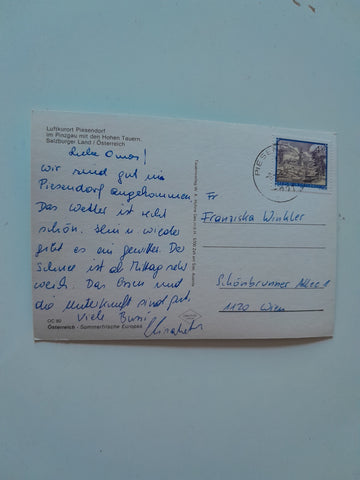 Luftkurort Piesendorf
im Pinzgau mit den Hohen Tauern.
Salzburger Land / Österreich
Liebe Omas!
Wir sind gut in
Piesendorf angekommen.
Das Wetter ist nicht
schön. Hin u wieder
gibt es ein Gewitter. Der
Schnee ist ab Mittag sehr
weich. Das Essen und
die Unterkunft sind gut.
Viele Bussi
Elisabeth
OC 90
Österreich - Sommerfrische Europas
PIESEN
Fr
Franziska Winkler
Schönbrunner Allee 1
1120 Wien